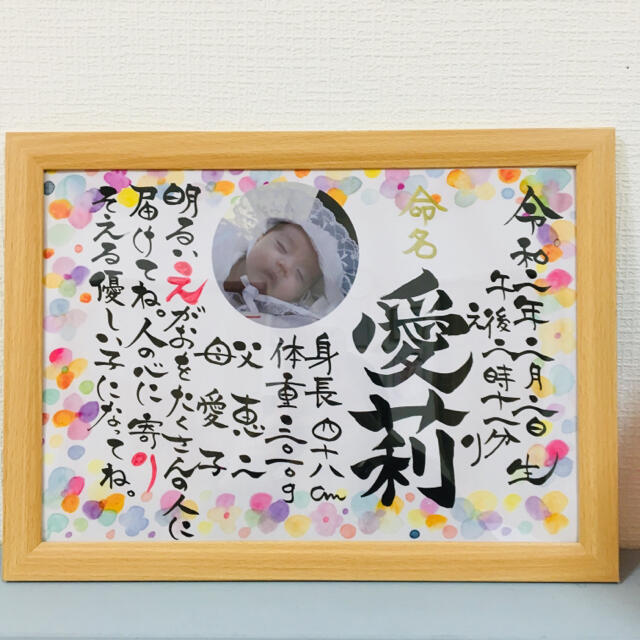 令和二年二月二日生
午後二時十二分
命名
愛莉
えり
身長四十八cm
体重三〇一〇g
父恵一
母愛子
明るいえがおをたくさんの人に
届けてね。人の心に寄り
そえる優しい子になってね。